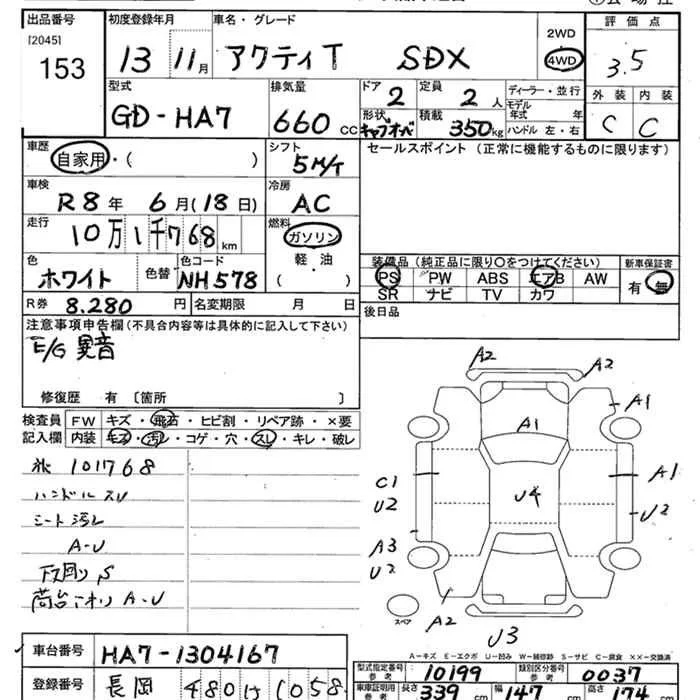 出品番号 初度登録年月 車名・グレード 2WD 評価点
[2045] 153 13 11月 アクティT SDX 4WD 3.5
型式 排気量 ドア 定員 ディーラー・並行 外装 内装
GD-HA7 660cc 2 2人 モデル年式 年 C C
形状 積載 350kg ハンドル 左・右
車歴 シフト セールスポイント(正常に機能するものに限ります)
自家用・( ) 5M/T
車検 冷房
R8年 6月(18日) AC
走行 燃料
10万1千768km ガソリン
色 色替 色コード 軽・油 装備品(純正品に限り〇をつけてください) 新車保証書
ホワイト NH578 ( ) PS PW ABS エアB AW 有 無
SR ナビ TV カワ
R券 8.280円 名変期限 月 日 後日品
注意事項申告欄(不具合内容等は具体的に記入して下さい)
E/G 異音
修復歴 有 〔箇所 〕
検査員 FW キズ・飛石・ヒビ割・リペア跡・×要
記入欄 内装 キズ・汚レ・コゲ・穴・スレ・キレ・破レ
101768
ハンドル スレ
シート 汚レ
A-U
下廻り S
荷台 A-U
A2 A2
A1 A1
C1 A1
U2 U4 U2
A3
U2
スペア A2
U3
A-キズ E-エクボ U-凹み W-補修跡 S-サビ C-腐食 XX-交換済
車台番号 HA7-1304167
型式指定番号 参考 10199 類別区分番号 参考 0037
登録番号 長岡 480 1058
車庫証明用 参考 長さ 339cm 幅 147cm 高さ 174cm